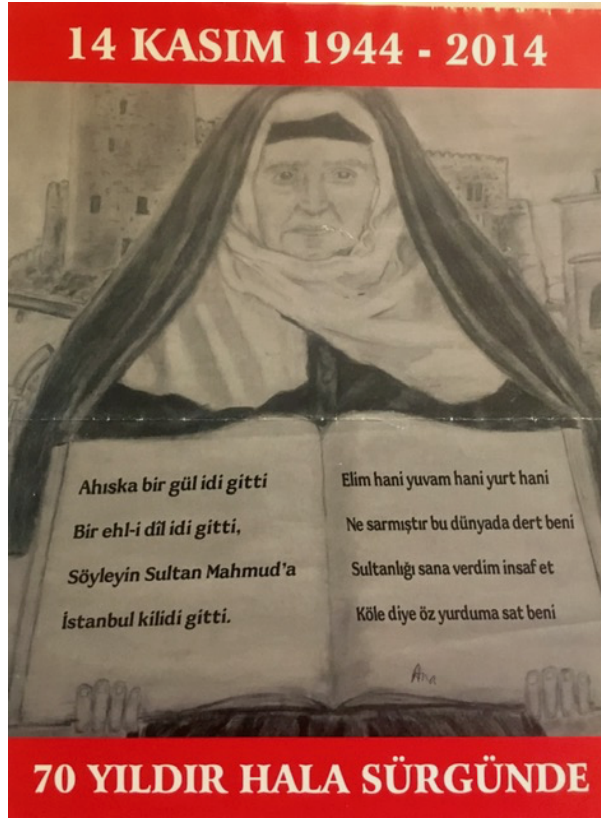 14 KASIM 1944 - 2014
Ahıska bir gül idi gitti
Bir ehl-i dîl idi gitti,
Söyleyin Sultan Mahmud'a
İstanbul kilidi gitti.
Elim hani yuvam hani yurt hani
Ne sarmıştır bu dünyada dert beni
Sultanlığı sana verdim insaf et
Köle diye öz yurduma sat beni
Ana
70 YILDIR HALA SÜRGÜNDE